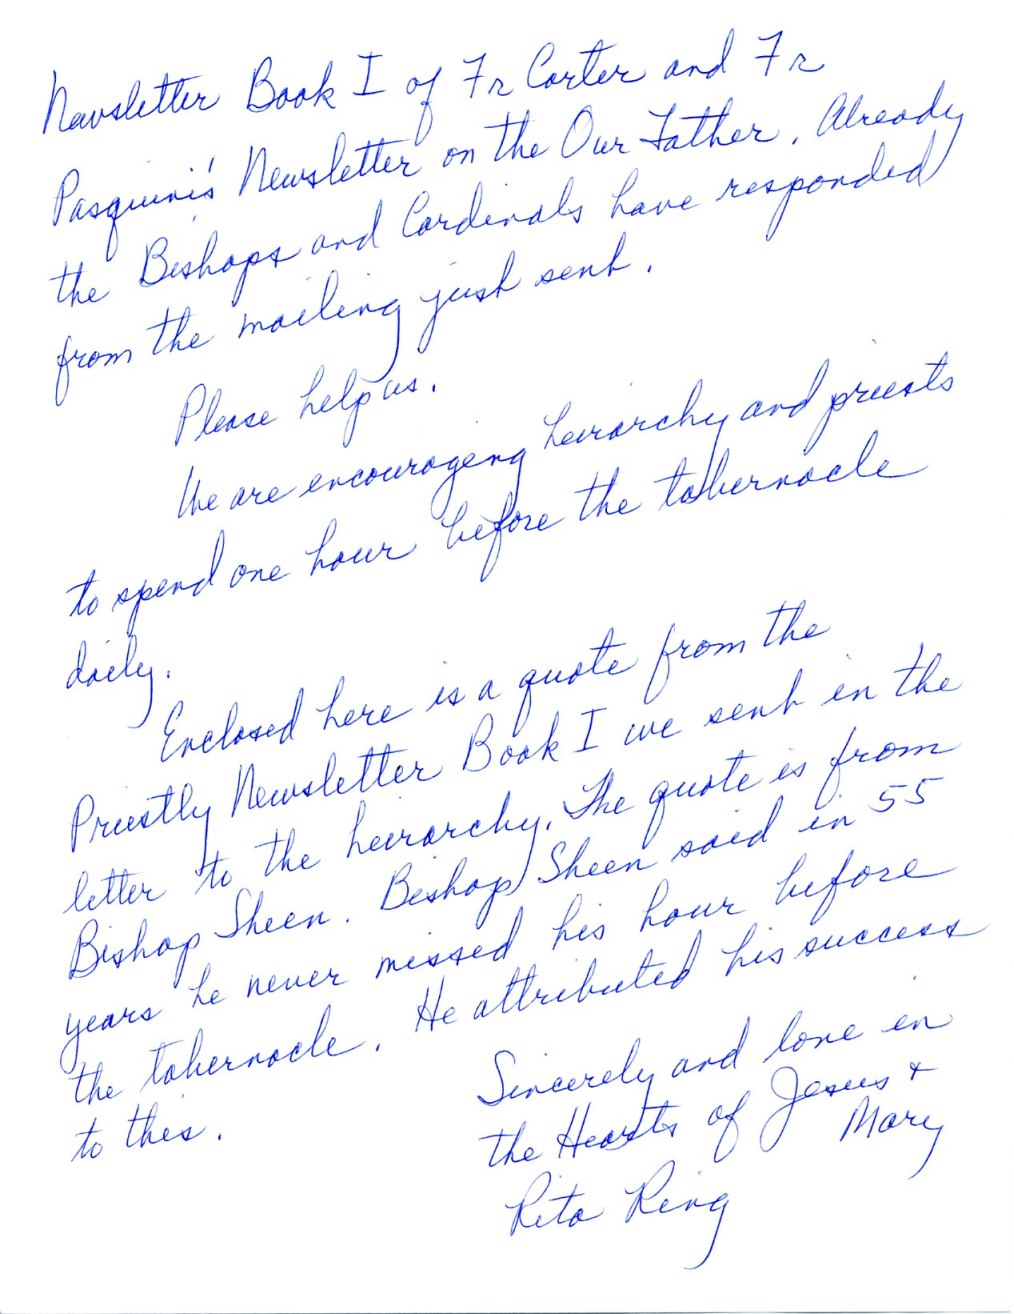 Newsletter Book I of Fr Carter and Fr
Pasquini's Newsletter on the Our Father. Already
the Bishops and Cardinals have responded
from the mailing just sent.
Please help us.
We are encouraging heirarchy and priests
to spend one hour before the tabernacle
daily.
Enclosed here is a quote from the
Priestly Newsletter Book I we sent in the
letter to the heirarchy. The quote is from
Bishop Sheen. Bishop Sheen said in 55
years he never missed his hour before
the tabernacle. He attributed his success
to this.
Sincerely and love in
the Hearts of Jesus +
Mary
Rita Ring